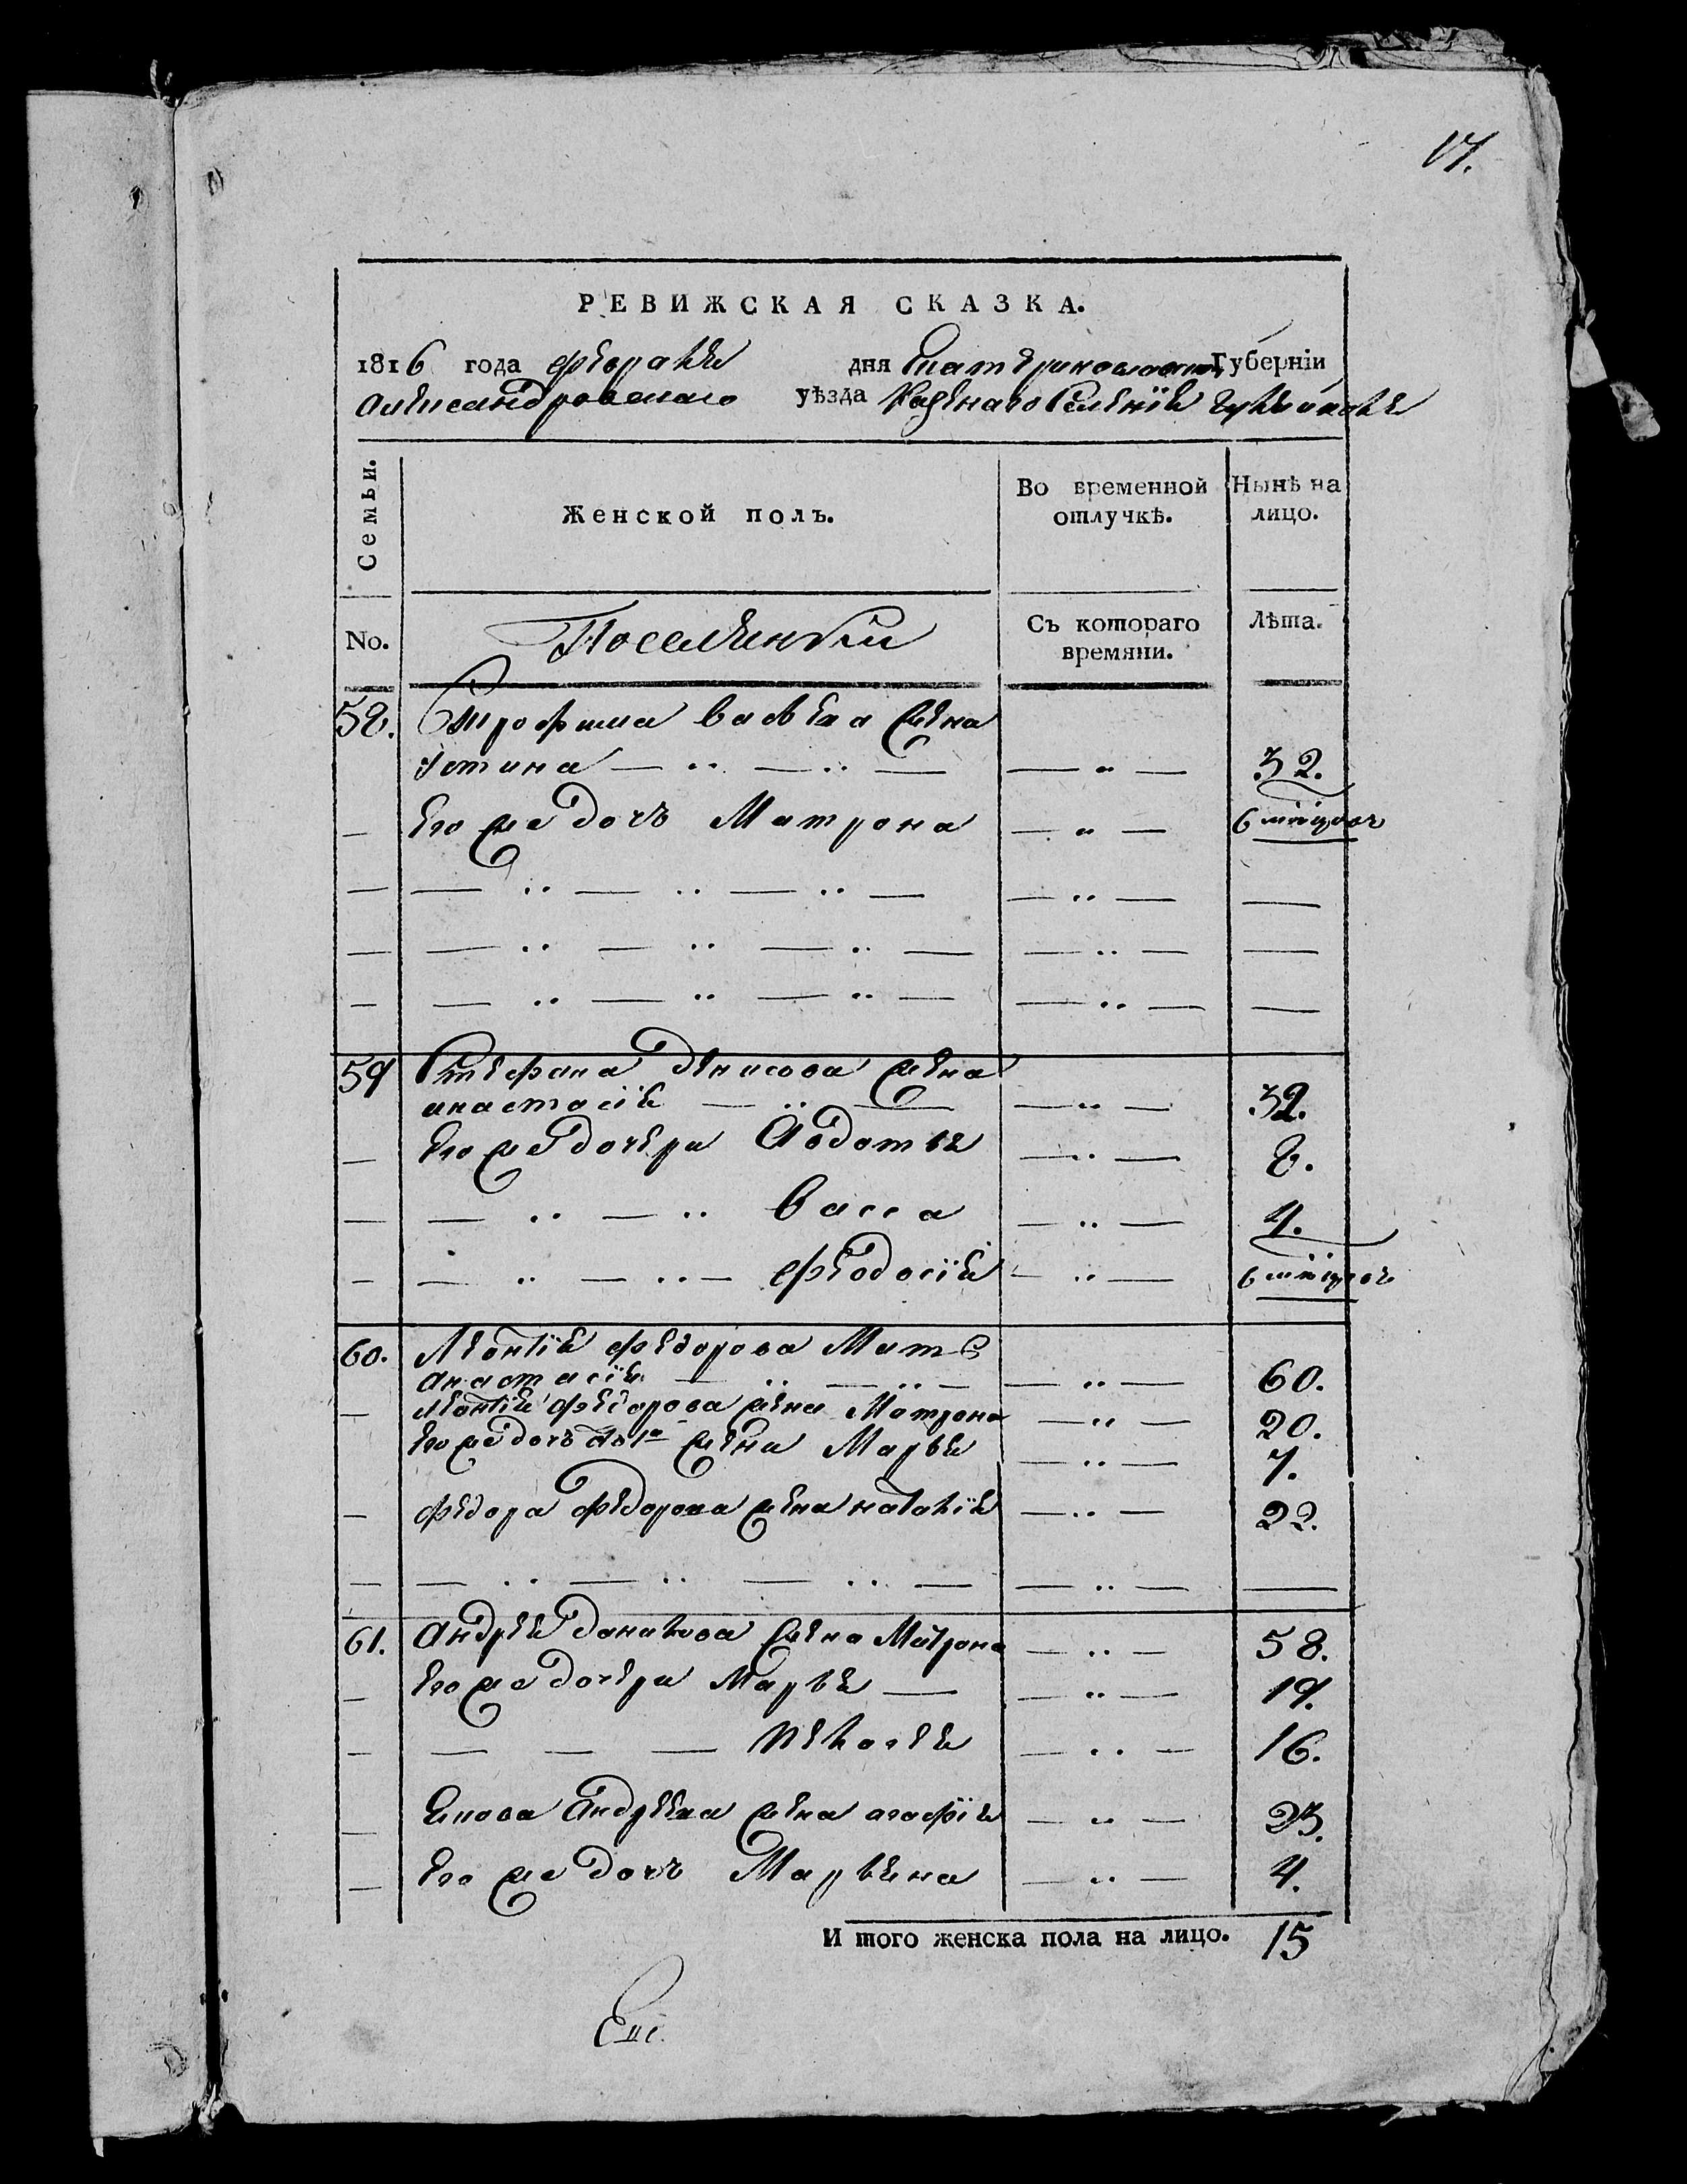 17.
РЕВИЖСКАЯ СКАЗКА.
1816 года февраля дня Екатеринославской Губерніи
Александровскаго уѣзда Казеннаго Селенія
Семьи. Женской полъ. Во временной отлучкѣ. Нынѣ на лицо.
No. Поселянки Съ котораго времяни. Лѣта.
58. Трофима Василева жена
Устина — „ — „ — — „ — 32.
— Его же дочь Матрона — „ — 6 мѣсяцовъ
— — „ — „ — „ — — „ — —
— — „ — „ — „ — — „ — —
— — „ — „ — „ — — „ — —
59 Стефана Денисова жена
анастасія — „ — — „ — 32.
— Его же дочери Авдотья — „ — 8.
— — „ — „ Васса — „ — 4.
— — „ — „ — Феодосія — „ — 6 мѣсяцовъ
60. Леонтія Федорова Мать
Анастасія — „ — „ — — „ — 60.
— Леонтія Федорова жена Матрона — „ — 20.
Его же дочь жена Марья — „ — 7.
— Федора Федорова жена наталія — „ — 22.
— — „ — „ — „ — — „ — —
61. Андрея Данилова жена Матрона — „ — 58.
— Его же дочери Марья — — „ — 19.
— — — — Пелагея — „ — 16.
— Якова Андреева жена агафія — „ — 23.
— Его же дочь Марьяна — „ — 4.
И того женска пола на лицо. 15